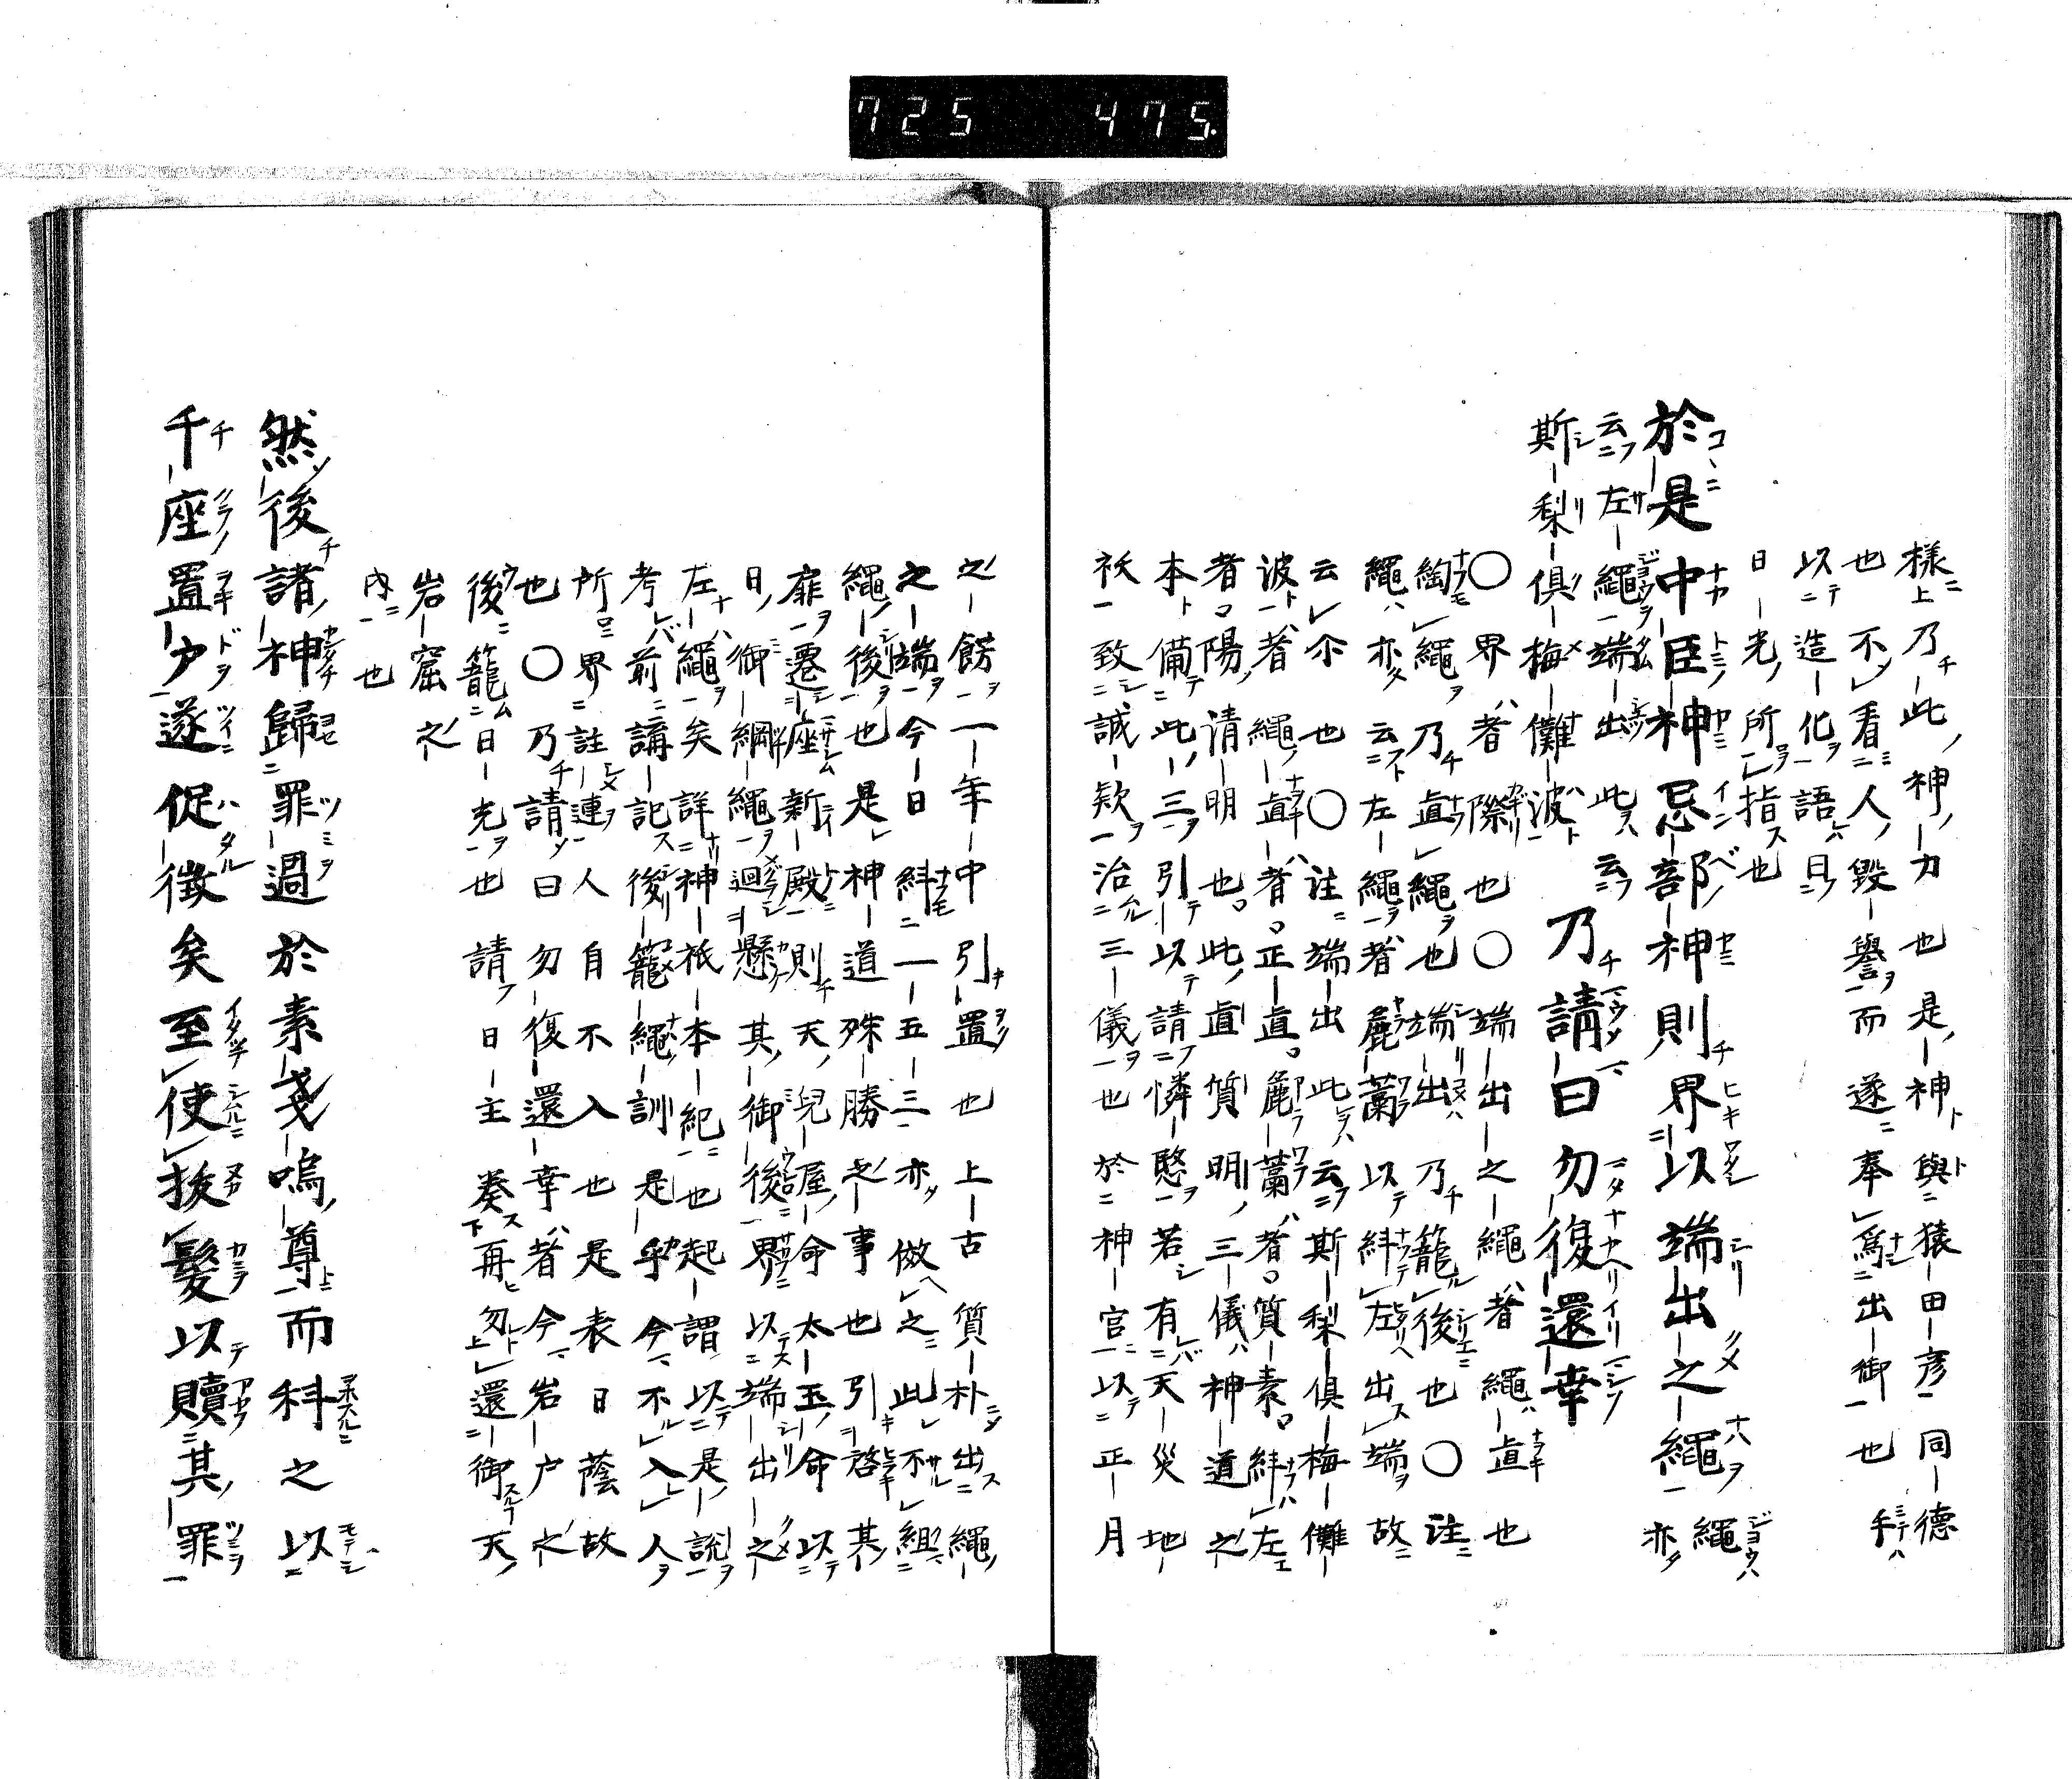 725 475.
樣乃此神力也是神與猿田彦同德
也不看人毀譽而遂奉爲出御也手
以造化語曰
日光所指也
於是中臣神忌部神則界以端出之繩 繩亦
云左繩端出此云
斯梨倶梅儺波 乃請曰勿復還幸
○界者際也○端出之繩者繩直也
綯繩乃直繩也端出乃籠後也○註
繩亦云左繩者麁藁以糾左出端故
云尓也○註端出此云斯梨倶梅儺
波者繩直者正直麁藁者質素糾左
者陽請明也此直質明三儀神道之
本備此三引以請憐愍若有天災地
祅致誠欵治三儀也於神官以正月
之餝一年中引置也上古質朴出繩
之端今日糾一五三亦倣之此不組
繩後也是神道殊勝之事也引啓其
扉遷座新殿則天兒屋命太玉命以
日御綱繩迴懸其御後界以端出之
左繩矣詳神祇本紀也起謂以是說
考前講記後籠繩訓是乎今不入人
所界註連人自不入也是表日蔭故
也○乃請曰勿復還幸者今岩戸之
後籠日光也請日主奏再勿還御天
岩窟之
內也
然後諸神歸罪過於素戔嗚尊而科之以
千座置戸遂促徵矣至使拔髮以贖其罪